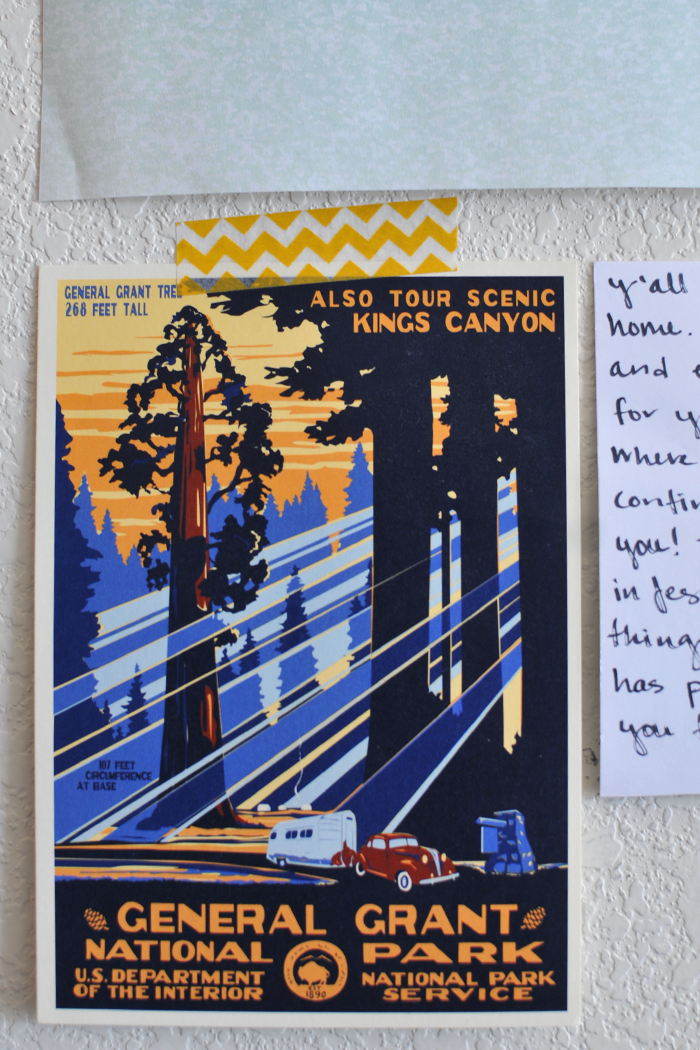 GENERAL GRANT TREE
268 FEET TALL
ALSO TOUR SCENIC
KINGS CANYON
107 FEET
CIRCUMFERENCE
AT BASE
GENERAL GRANT
NATIONAL PARK
U.S. DEPARTMENT
OF THE INTERIOR
EST
1890
NATIONAL PARK
SERVICE
y'all
home.
and
for
where
you!
in
things
has
you